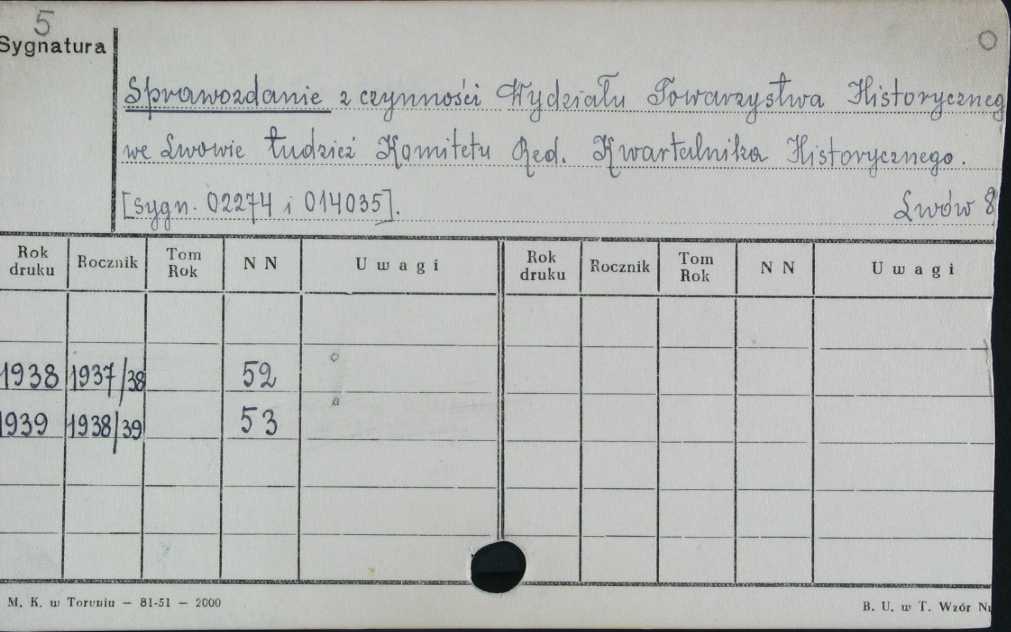 5
Sygnatura
Sprawozdanie z czynności Wydziału Towarzystwa Historyczneg
we Lwowie tudzież Komitetu Red. Kwartalnika Historycznego.
[sygn. 02274 i 014035]. Lwów 8
Rok druku Rocznik Tom Rok N N Uwagi Rok druku Rocznik Tom Rok N N Uwagi
1938 1937/38 52
1939 1938/39 53
M. K. w Toruniu — 81-51 — 2000 B. U. w T. Wzór Nr